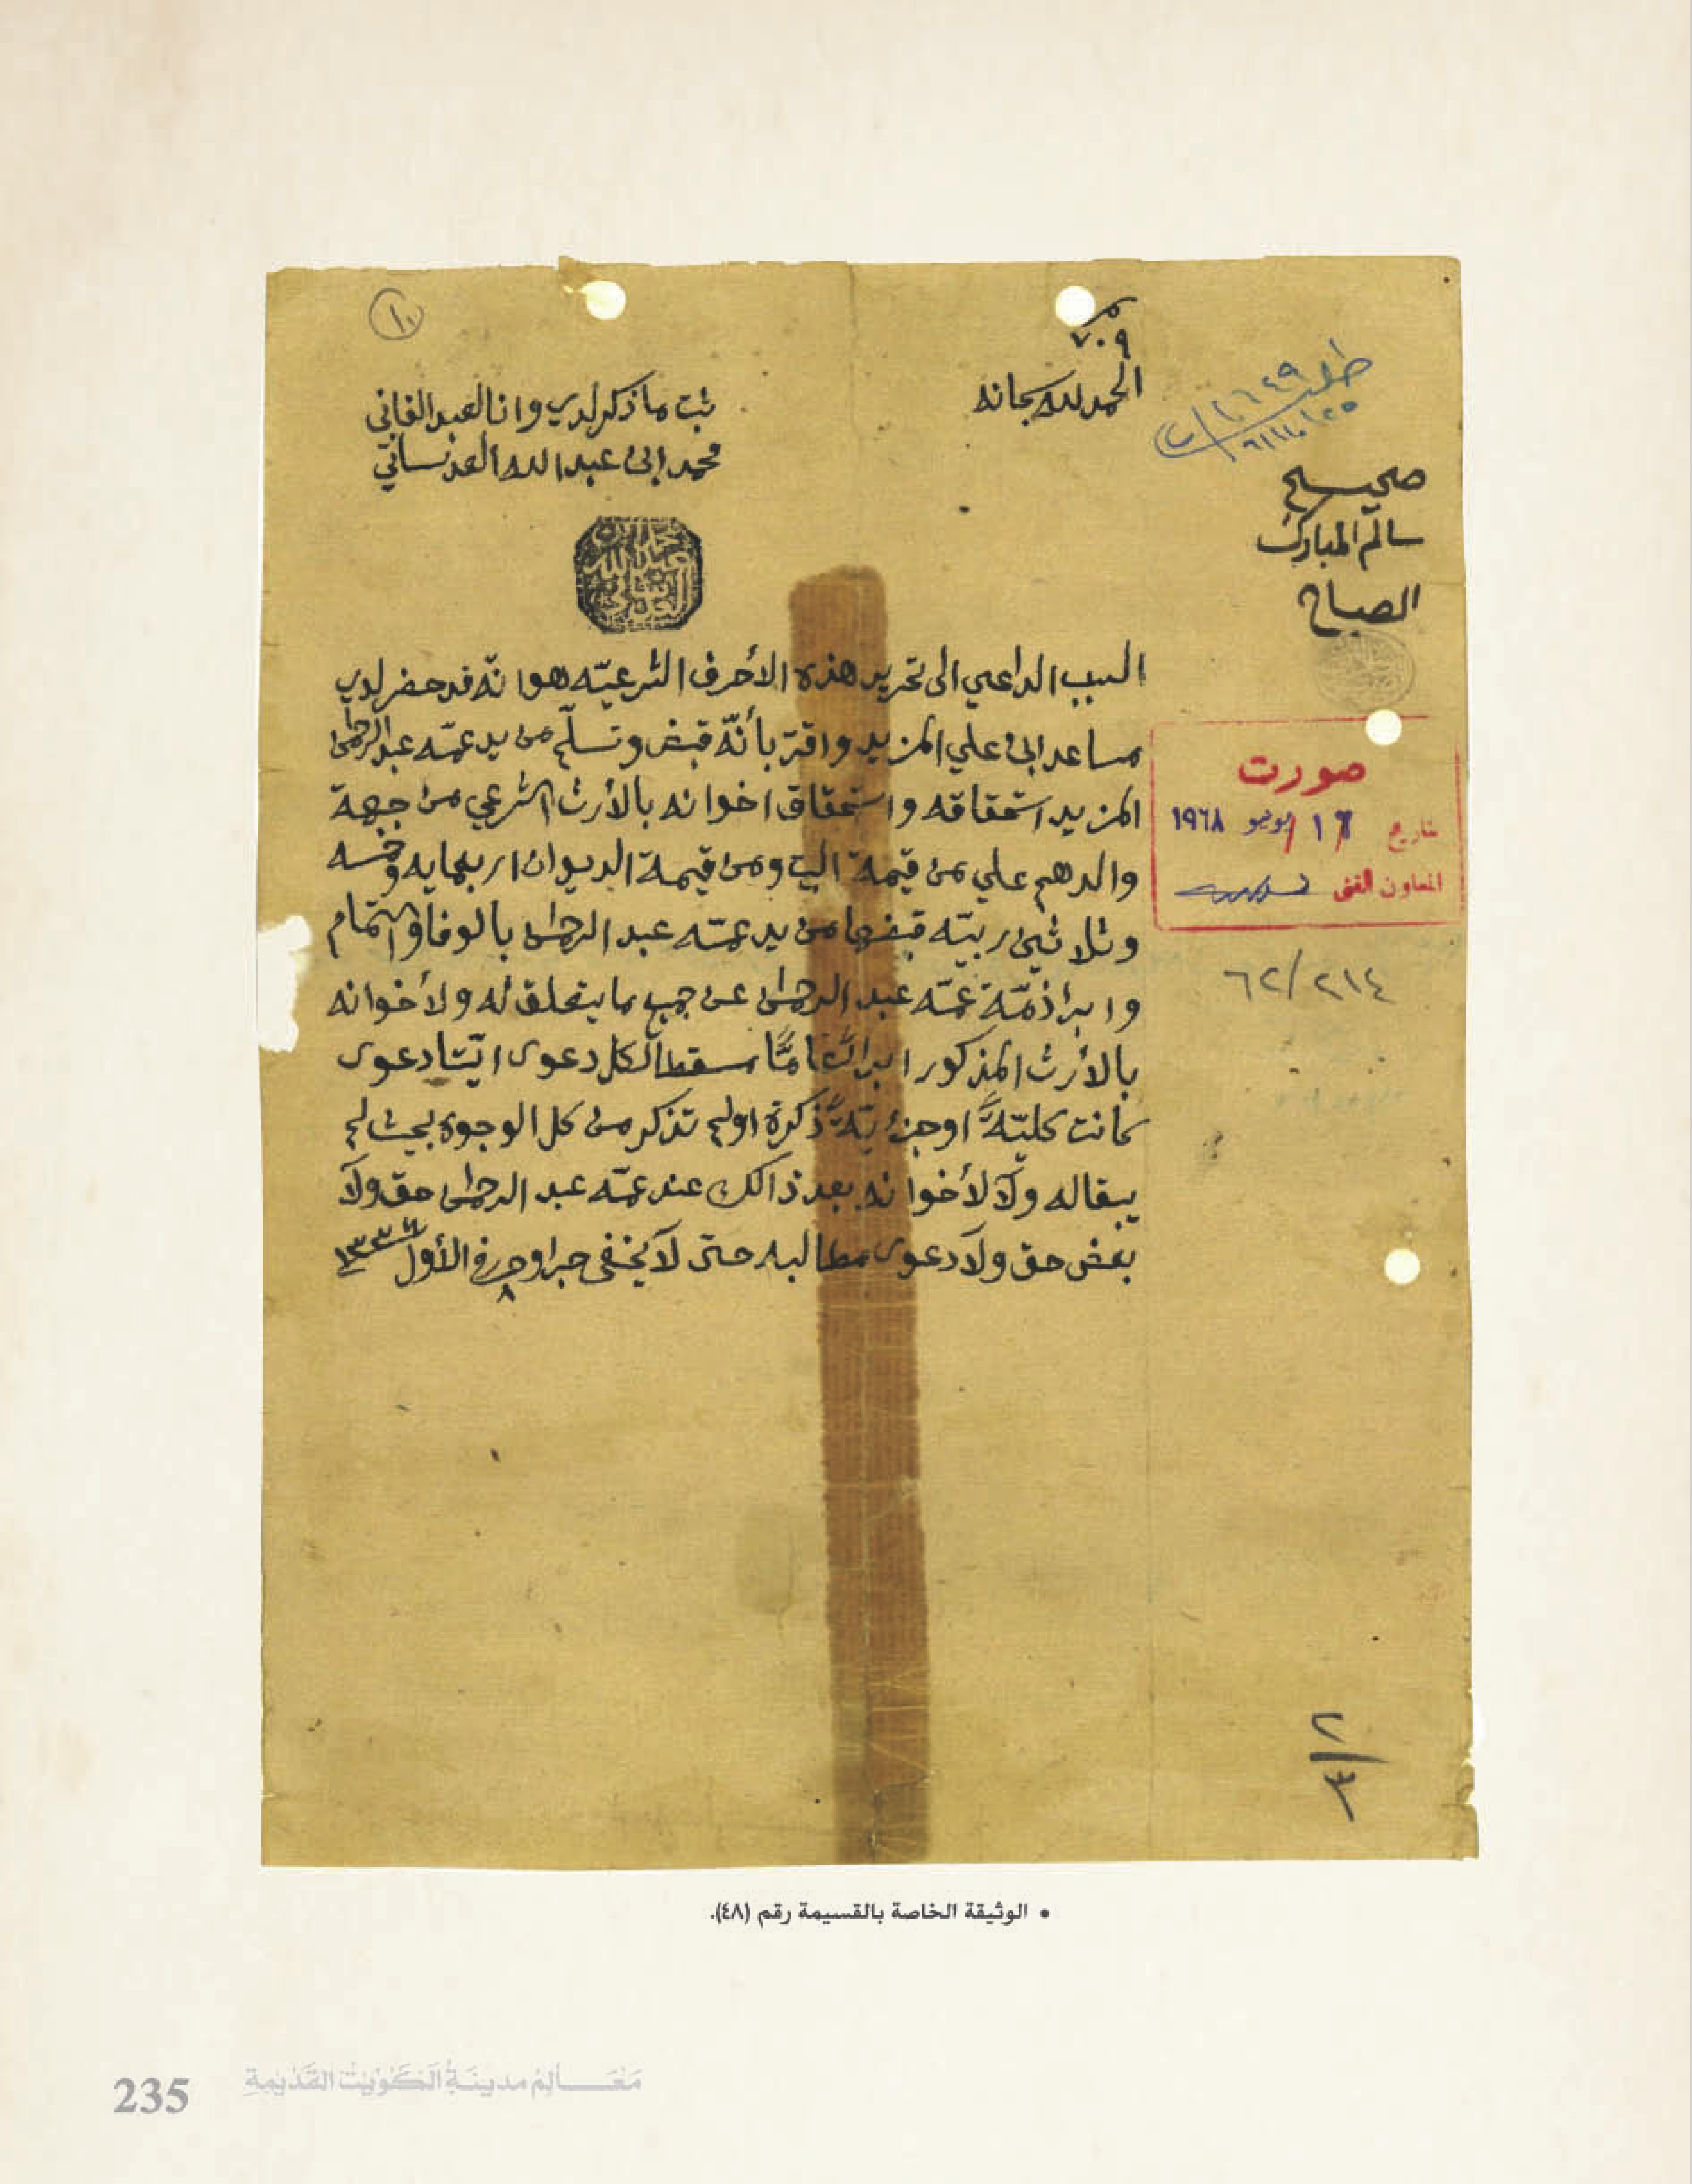 ٧٠٩
الحمد لله سبحانه
ثبت ما ذكر لدي وانا العبد الفاني
محمد ابن عبد الله العدساني
طلب ٢٦٤٩
صحيح
سالم المبارك
الصباح
السبب الداعي الى تحرير هذه الأحرف الشرعيّه هو انّه قد حضر لدي
مساعد ابن علي المزيد واقرّ بأنّه قبض وتسلّم من يد عمّه عبد الرحمن
المزيد استحقاقه واستحقاق اخوانه بالأرث الشرعي من جهة
والدهم علي من قيمة البيت ومن قيمة الديوان اربعمايه وخمسه
وثلاثين ربيّه قبضها من يد عمّه عبد الرحمن بالوفا والتمام
وابرا ذمّة عمّه عبد الرحمن عن جميع ما يتعلق له ولأخوانه
بالأرث المذكور ابراءً تامًّا مسقطا لكل دعوى ايّتا دعوى
كانت كليّةً او جزئيّةً ذكرة اولم تذكر من كل الوجوه بحيث لم
يبقا له ولا لأخوانه بعد ذالك عند عمّه عبد الرحمن حق ولا
بعض حق ولا دعوى مطالبه حتى لا يخفى جرا وحرر في ٨ الأول ١٣٣٦
صورت
بتاريخ ١٦ يونيو ١٩٦٨
المعاون الفني
٦٢/٢١٤
٢/٤
• الوثيقة الخاصة بالقسيمة رقم (٤٨).
مَعَالِمُ مدينَةِ الكُوَيْتِ القَدِيمَةِ
235